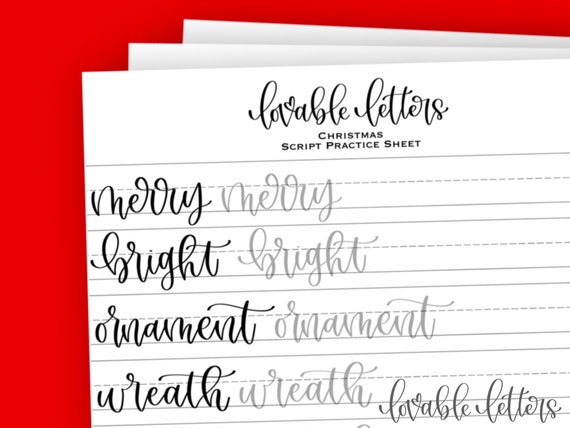 lovable letters
CHRISTMAS
SCRIPT PRACTICE SHEET
merry merry
bright bright
ornament ornament
wreath wreath
lovable letters